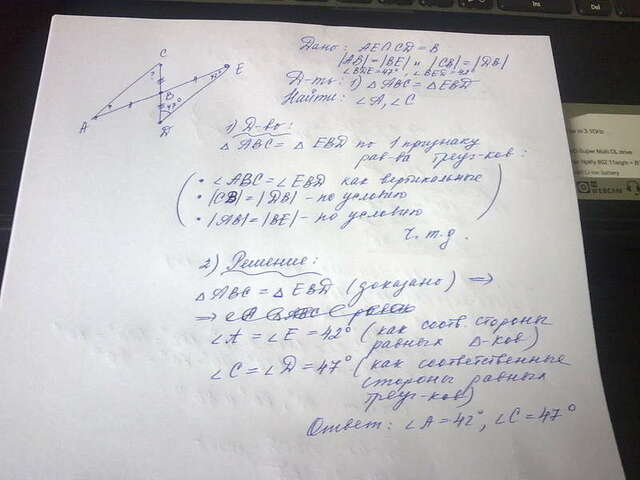 Дано: AE∩CD=B
|AB|=|BE| и |CB|=|DB|
∠BDE=47°, ∠BED=42°
Д-ть: 1) △ABC=△EBD
Найти: ∠A, ∠C
C
E
B
A
D
?
?
42°
47°
1) Д-во:
△ABC=△EBD по 1 признаку
рав-ва треуг-ков:
• ∠ABC=∠EBD как вертикальные
• |CB|=|DB| - по условию
• |AB|=|BE| - по условию
ч.т.д.
2) Решение:
△ABC=△EBD (доказано) =>
=>
∠A=∠E=42° (как соотв. стороны
равных △-ков)
∠C=∠D=47° (как соответственные
стороны равных
треуг-ков)
Ответ: ∠A=42°, ∠C=47°
Super Multi DL drive
Li-Ion battery
WEBCAM
Del